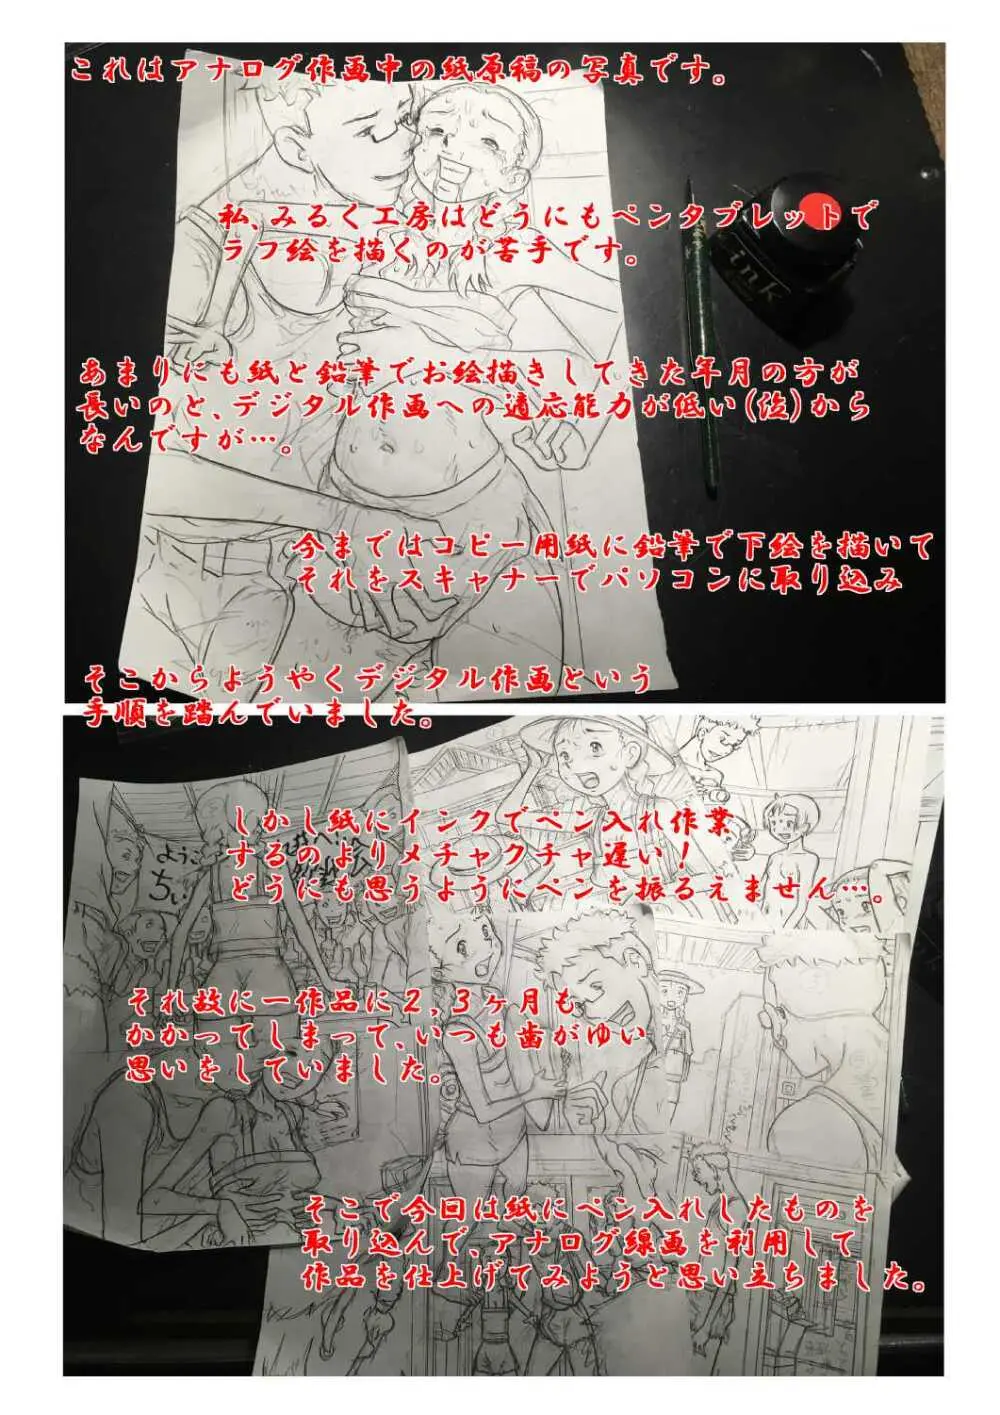 これはアナログ作画中の紙原稿の写真です。
私、みるく工房はどうにもペンタブレットで
ラフ絵を描くのが苦手です。
ink
あまりにも紙と鉛筆でお絵描きしてきた年月の方が
長いのと、デジタル作画への適応能力が低い(泣)から
なんですが…。
今まではコピー用紙に鉛筆で下絵を描いて
それをスキャナーでパソコンに取り込み
そこからようやくデジタル作画という
手順を踏んでいました。
しかし紙にインクでペン入れ作業
するのよりメチャクチャ遅い！
どうにも思うようにペンを振るえません…。
それ故に一作品に2、3ヶ月も
かかってしまって、いつも歯がゆい
思いをしていました。
そこで今回は紙にペン入れしたものを
取り込んで、アナログ線画を利用して
作品を仕上げてみようと思い立ちました。